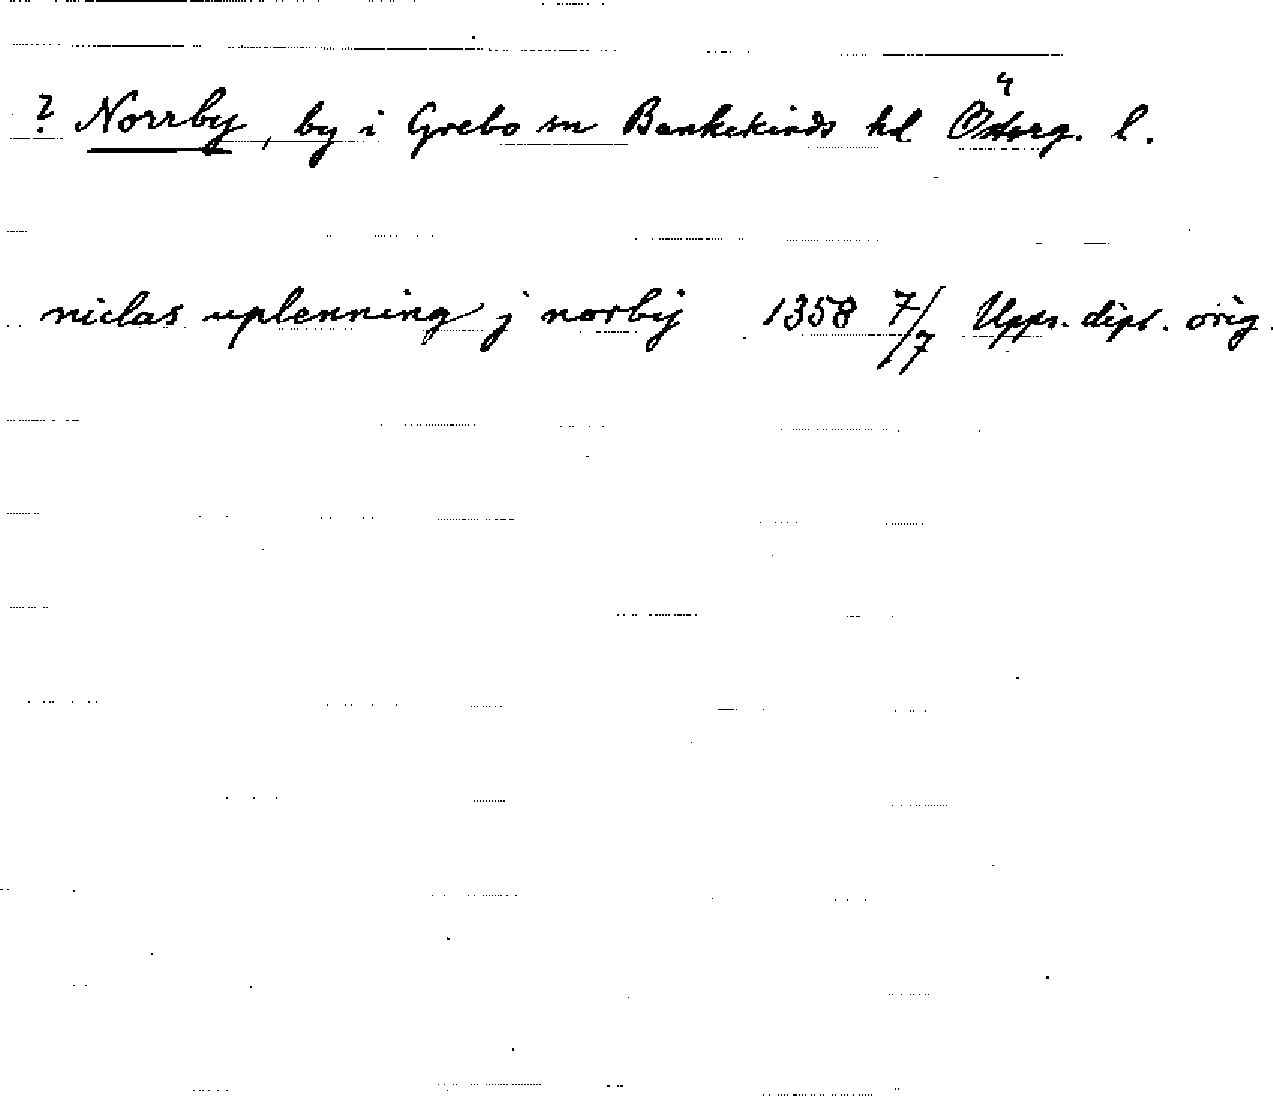 ? Norrby, by i Grebo sn Bankekinds hd Österg. l.
niclas uplenning j norbij 1358 7/7 Upps. dipl. orig.